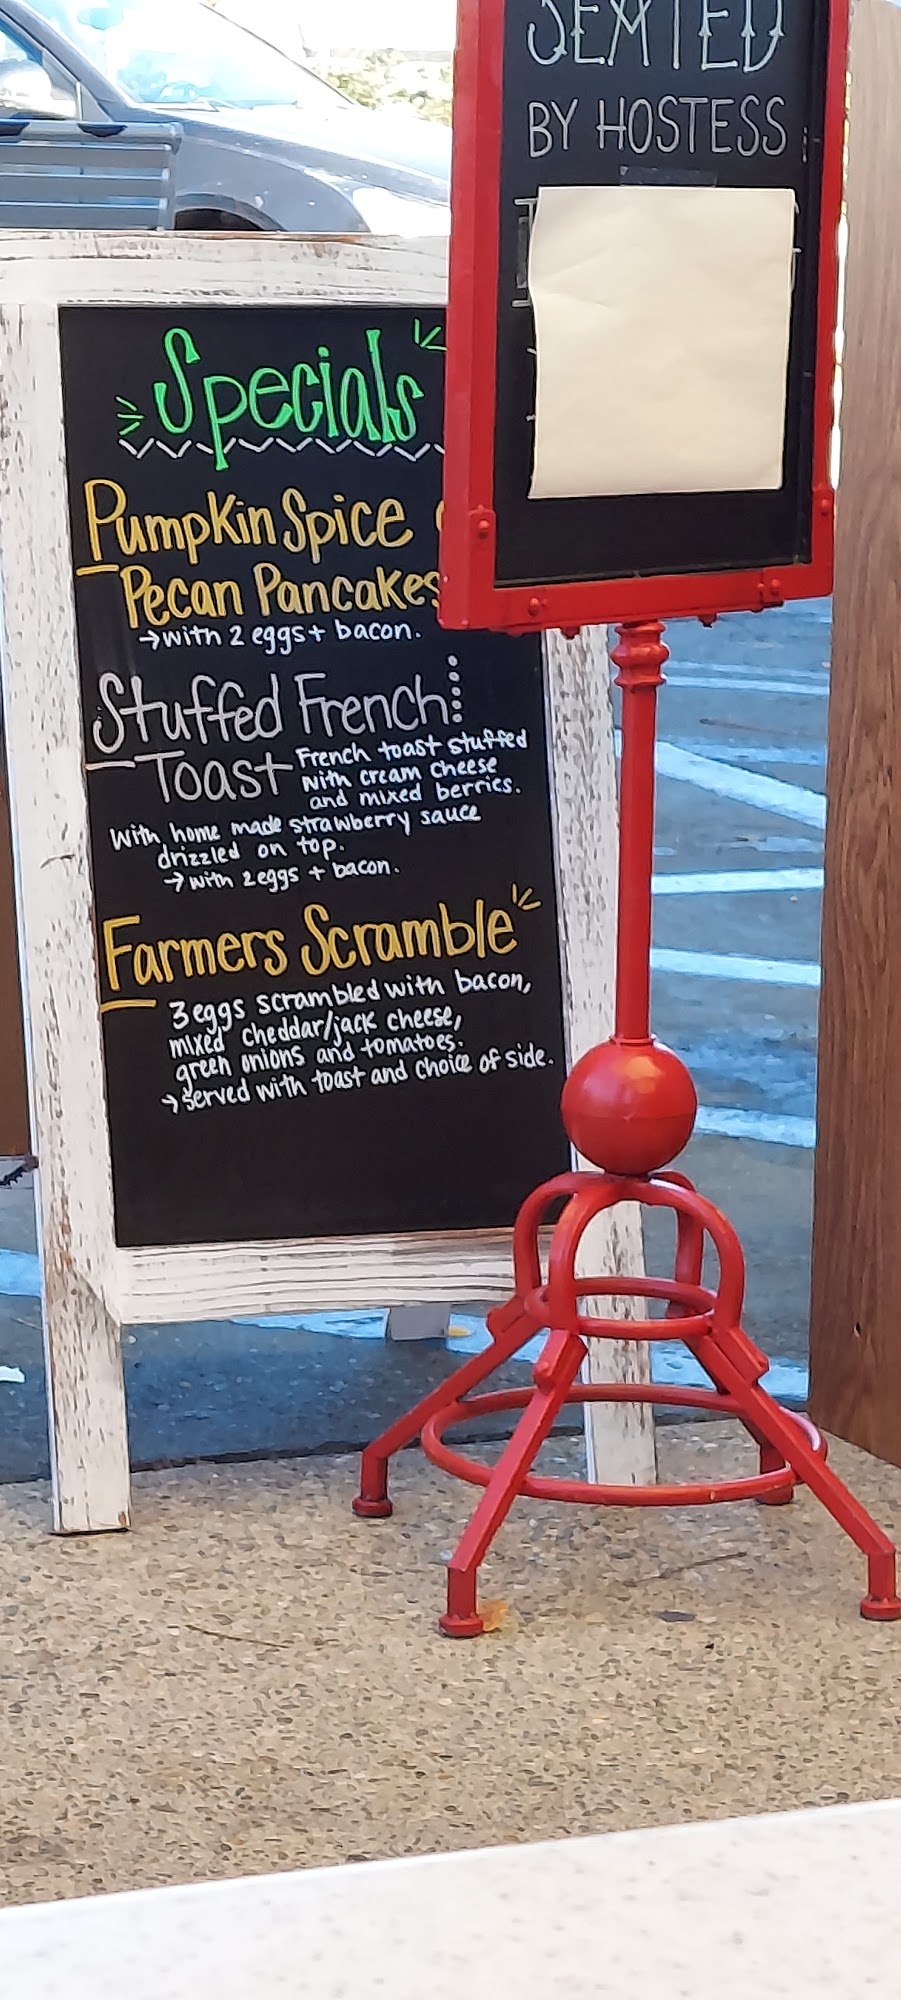 SEATED
BY HOSTESS
Specials
Pumpkin Spice
Pecan Pancakes
→with 2 eggs + bacon.
Stuffed French
Toast French toast stuffed
with cream cheese
and mixed berries.
With home made strawberry sauce
drizzled on top.
→ with 2 eggs + bacon.
Farmers Scramble
3 eggs scrambled with bacon,
mixed cheddar/jack cheese,
green onions and tomatoes.
→ served with toast and choice of side.